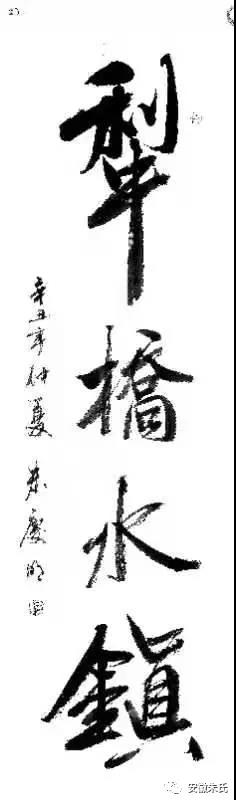 犁橋水鎮
辛丑年仲夏 朱慶明
安徽朱氏